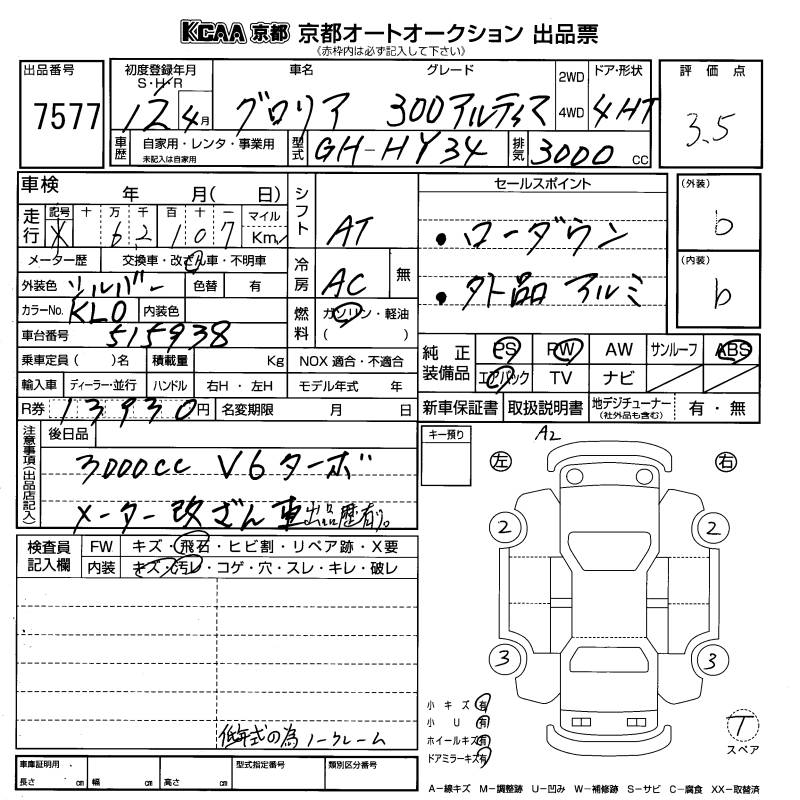 KCAA 京都 京都オートオークション 出品票
《赤枠内は必ず記入して下さい》
出品番号
7577
初度登録年月
S・H・R
12 4月
車名 グレード
グロリア 300アルティマ
2WD
4WD
ドア・形状
4HT
評価点
3.5
車歴
自家用・レンタ・事業用
未記入は自家用
型式
GH-HY34
排気
3000 CC
車検 年 月( 日)
走行
記号 十 万 千 百 十 一
* 6 2 1 0 7
マイル
Km
メーター歴 交換車・改ざん車・不明車
外装色 シルバー 色替 有
カラーNo. KL0 内装色
車台番号 515938
乗車定員( )名 積載量 Kg NOX 適合・不適合
輸入車 ディーラー・並行 ハンドル 右H・左H モデル年式 年
R券 13930円 名変期限 月 日
シフト
AT
冷房
AC 無
燃料
ガソリン・軽油
( )
セールスポイント
・ローダウン
・外品アルミ
(外装)
b
(内装)
b
純正装備品
PS PW AW サンルーフ ABS
エアバック TV ナビ
新車保証書 取扱説明書 地デジチューナー
(社外品も含む)
有・無
注意事項(出品店記入)
後日品
3000cc V6ターボ
メーター改ざん車 出品歴有り。
検査員記入欄
FW キズ・飛石・ヒビ割・リペア跡・X要
内装 キズ・汚レ・コゲ・穴・スレ・キレ・破レ
低年式の為ノークレーム
キー預り
A2
左
右
2
2
3
3
小キズ 有
小U 有
ホイールキズ 有
ドアミラーキズ 有
T
スペア
車庫証明用
長さ cm 幅 cm 高さ cm
型式指定番号
類別区分番号
A-線キズ M-調整跡 U-凹み W-補修跡 S-サビ C-腐食 XX-取替済